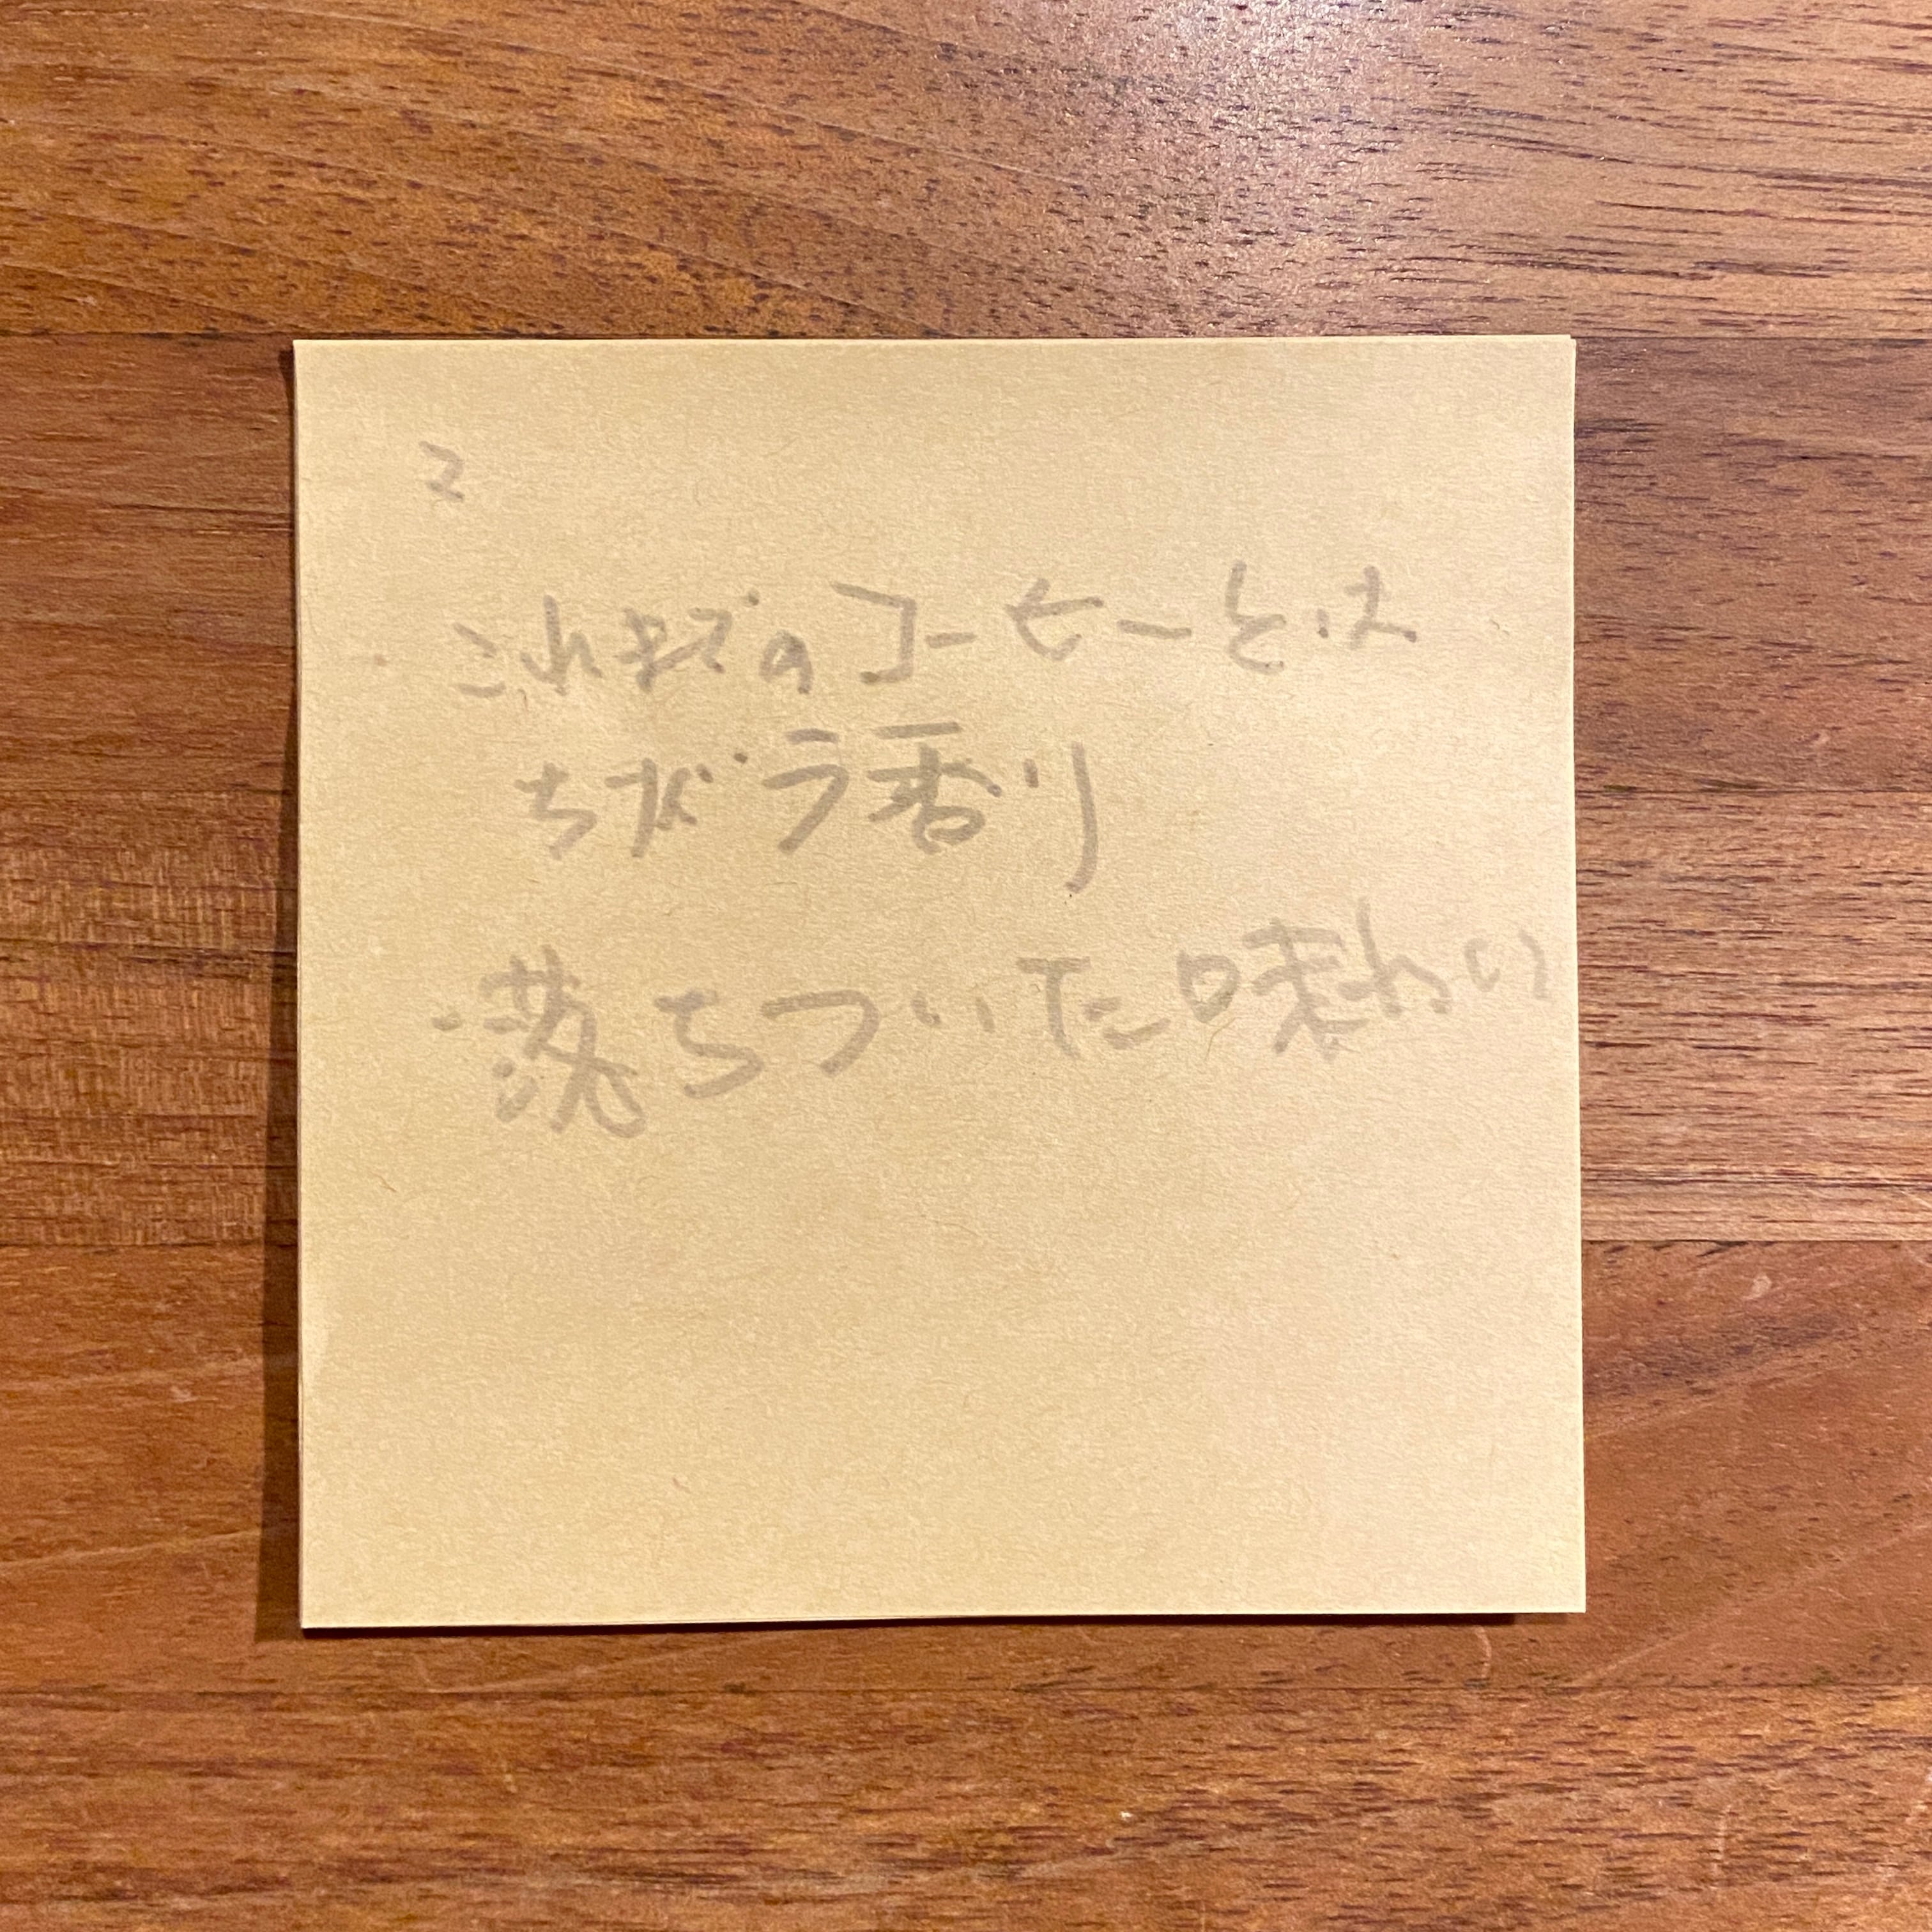 2
これまでのコーヒーとは
ちがう香り
・落ちついた味わい